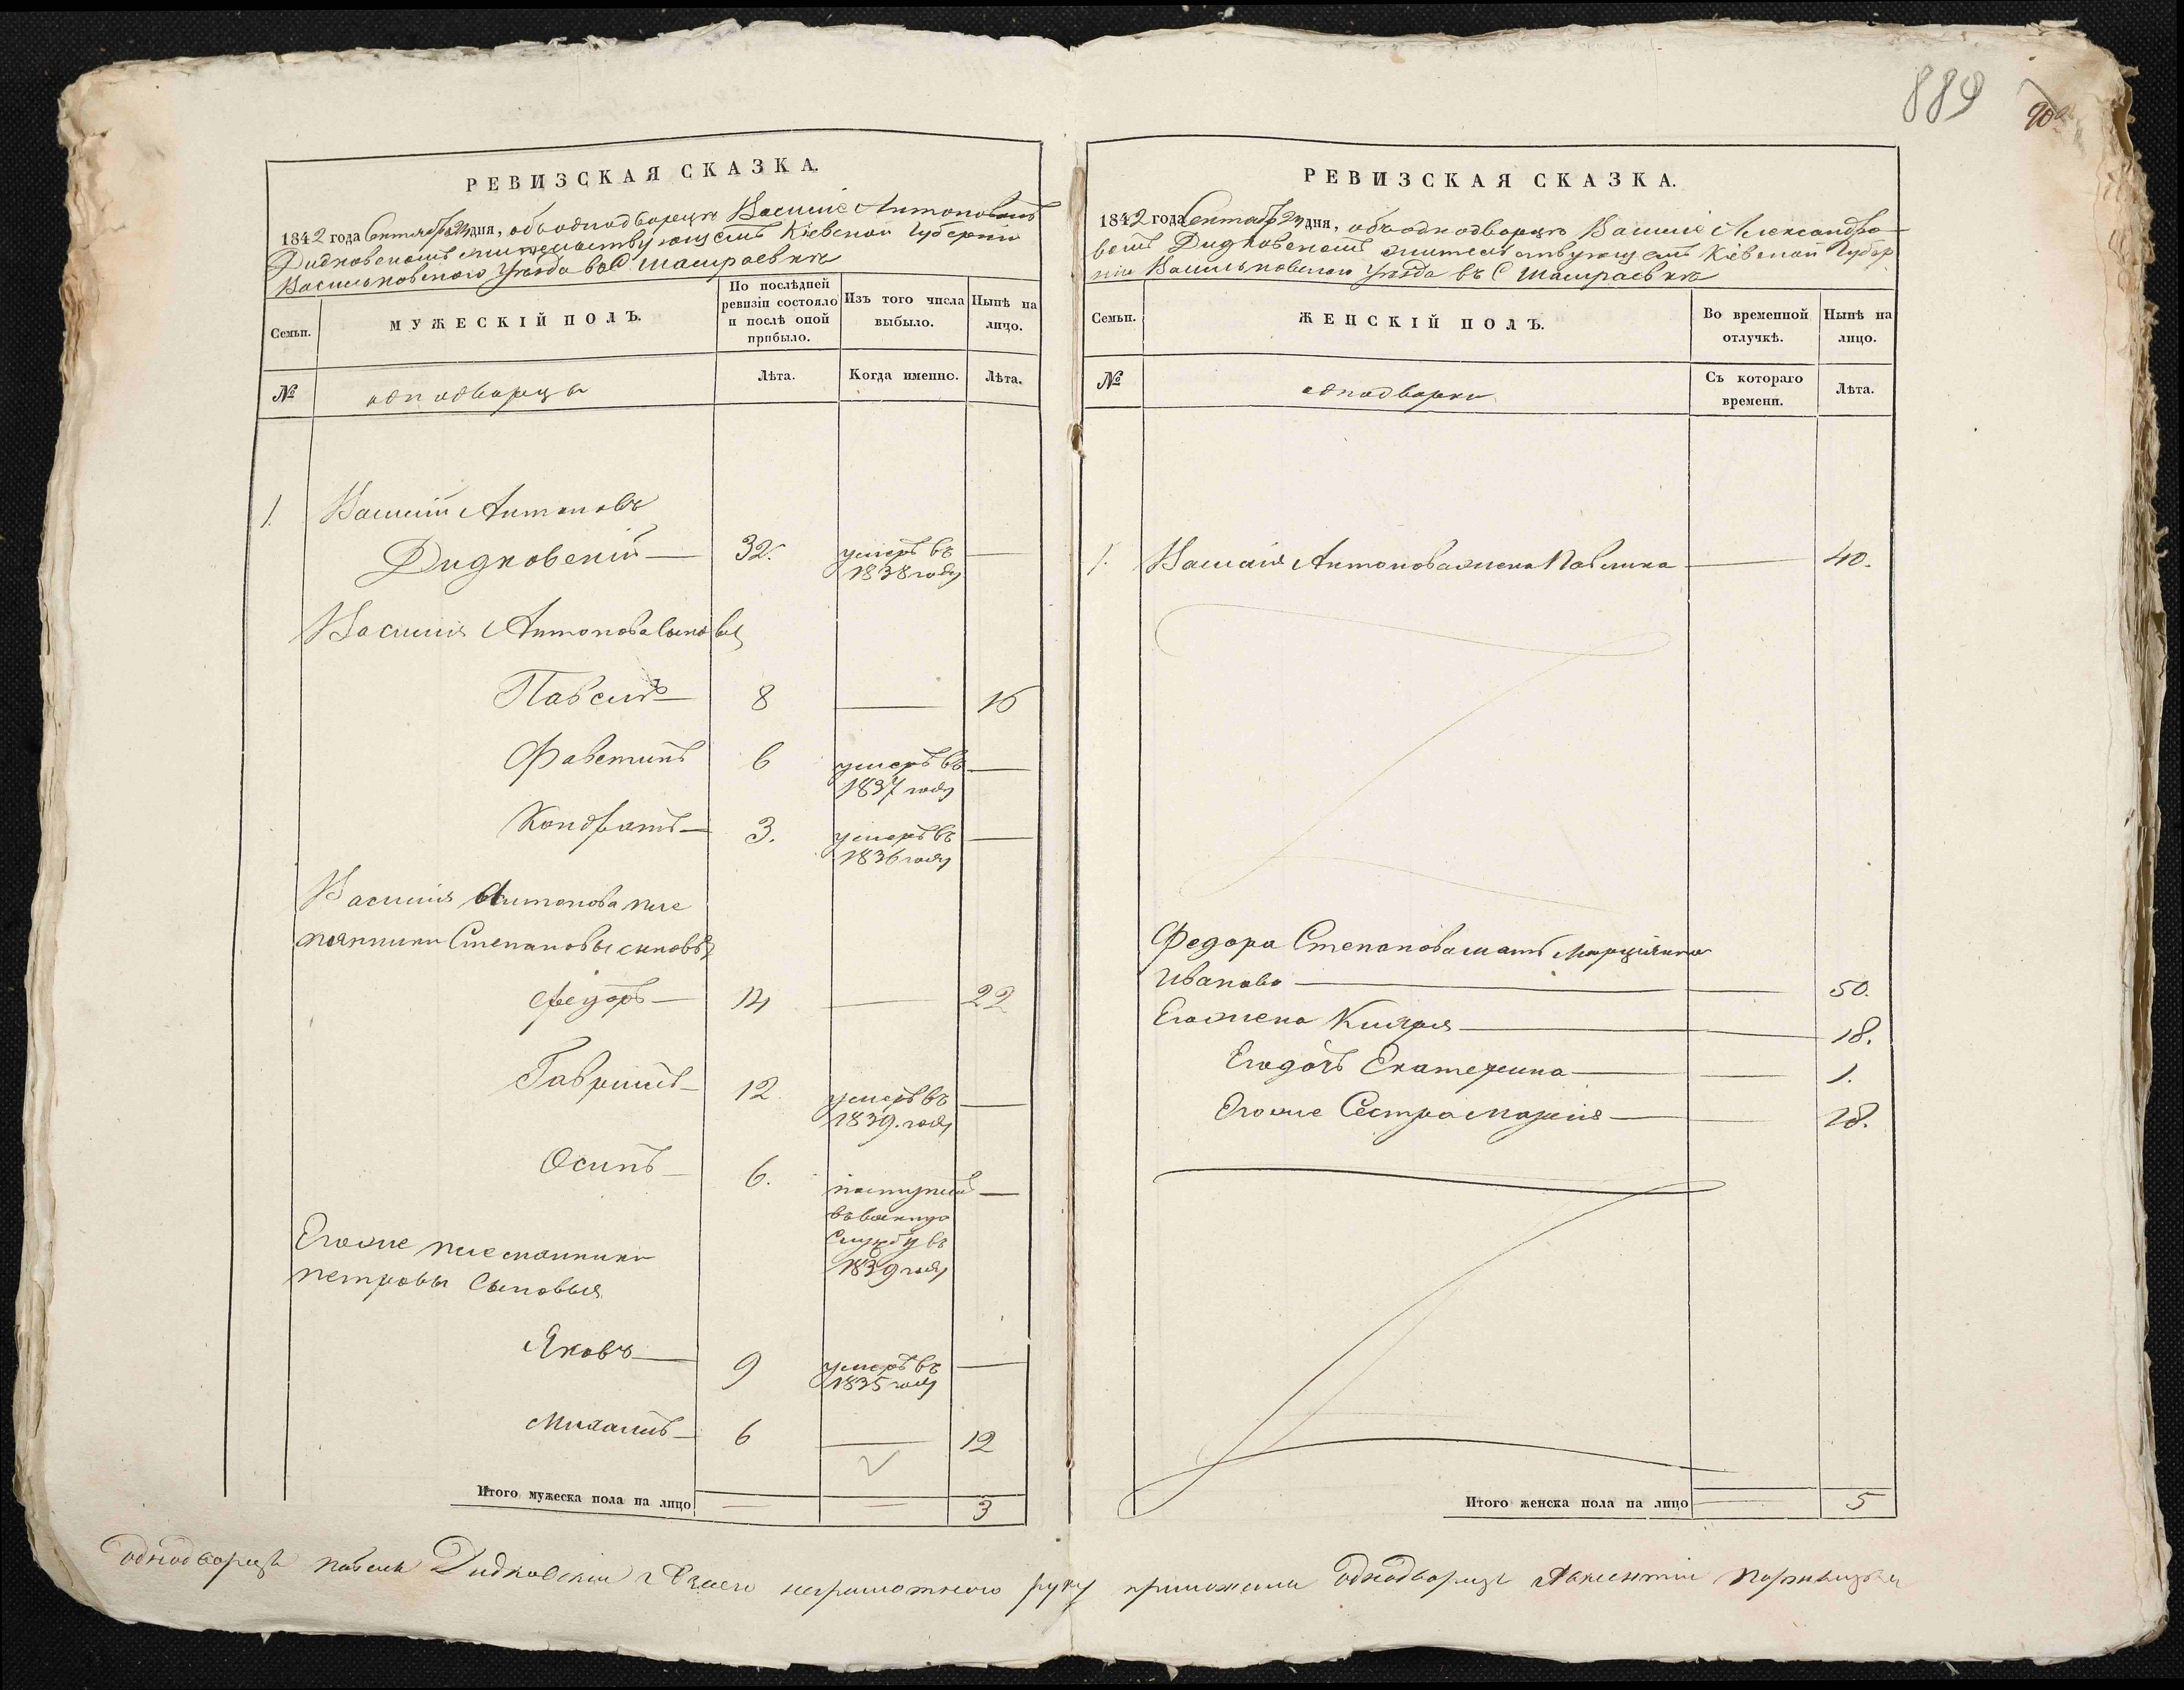 889
РЕВИЗСКАЯ СКАЗКА.
1842 года Сентября 23 дня, объ однодворцѣ Василіе Антоновомъ
Дидковскомъ жительствующемъ Кіевской Губерніи
Васильковского Уѣзда въ С Шамраевкѣ
Семьи.
МУЖЕСКІЙ ПОЛЪ.
По послѣдней ревизіи состояло и послѣ оной прибыло.
Изъ того числа выбыло.
Нынѣ на лицо.
№
однодворцы
Лѣта.
Когда именно.
Лѣта.
1. Василій Антоновъ
Дидковскій — 32. умеръ въ —
1838 году
Василія Антонова сыновья
Павелъ — 8 — 16
Фавстинъ 6 умеръ въ —
1837 году
Кондратъ — 3. умеръ въ —
1836 году
Василія Антонова пле
мянники Степановы сыновья
Федоръ — 14 — 22
Гаврилъ — 12 умеръ въ —
1839. году
Осипъ — 6. поступилъ —
въ воинскую
Службу въ
1839 году
Его же племянники
Петровы Сыновья
Яковъ — 9 умеръ въ —
1835 году
Михаилъ — 6 — 12
Итого мужеска пола на лицо — — 3
РЕВИЗСКАЯ СКАЗКА.
1842 года Сентябр 23 дня, объ однодворцѣ Василіе Александро
вомъ Дидковскомъ жительствующемъ Кіевской Губер
ніи Васильковского Уѣзда въ С Шамраевкѣ
Семьи.
ЖЕНСКІЙ ПОЛЪ.
Во временной отлучкѣ.
Нынѣ на лицо.
№
однодворки
Съ котораго времени.
Лѣта.
1. Василія Антонова жена Павлина — 40.
Федора Степанова мать Марціянна
Иванова — — 50.
Его жена Килря — — 18.
Его дочь Екатерина — — 1.
Его же Сестра Марія — — 18.
Итого женска пола на лицо — 5
однодворецъ Павелъ Дидковскій а вмѣсто неграмотного руку приложилъ Однодворецъ